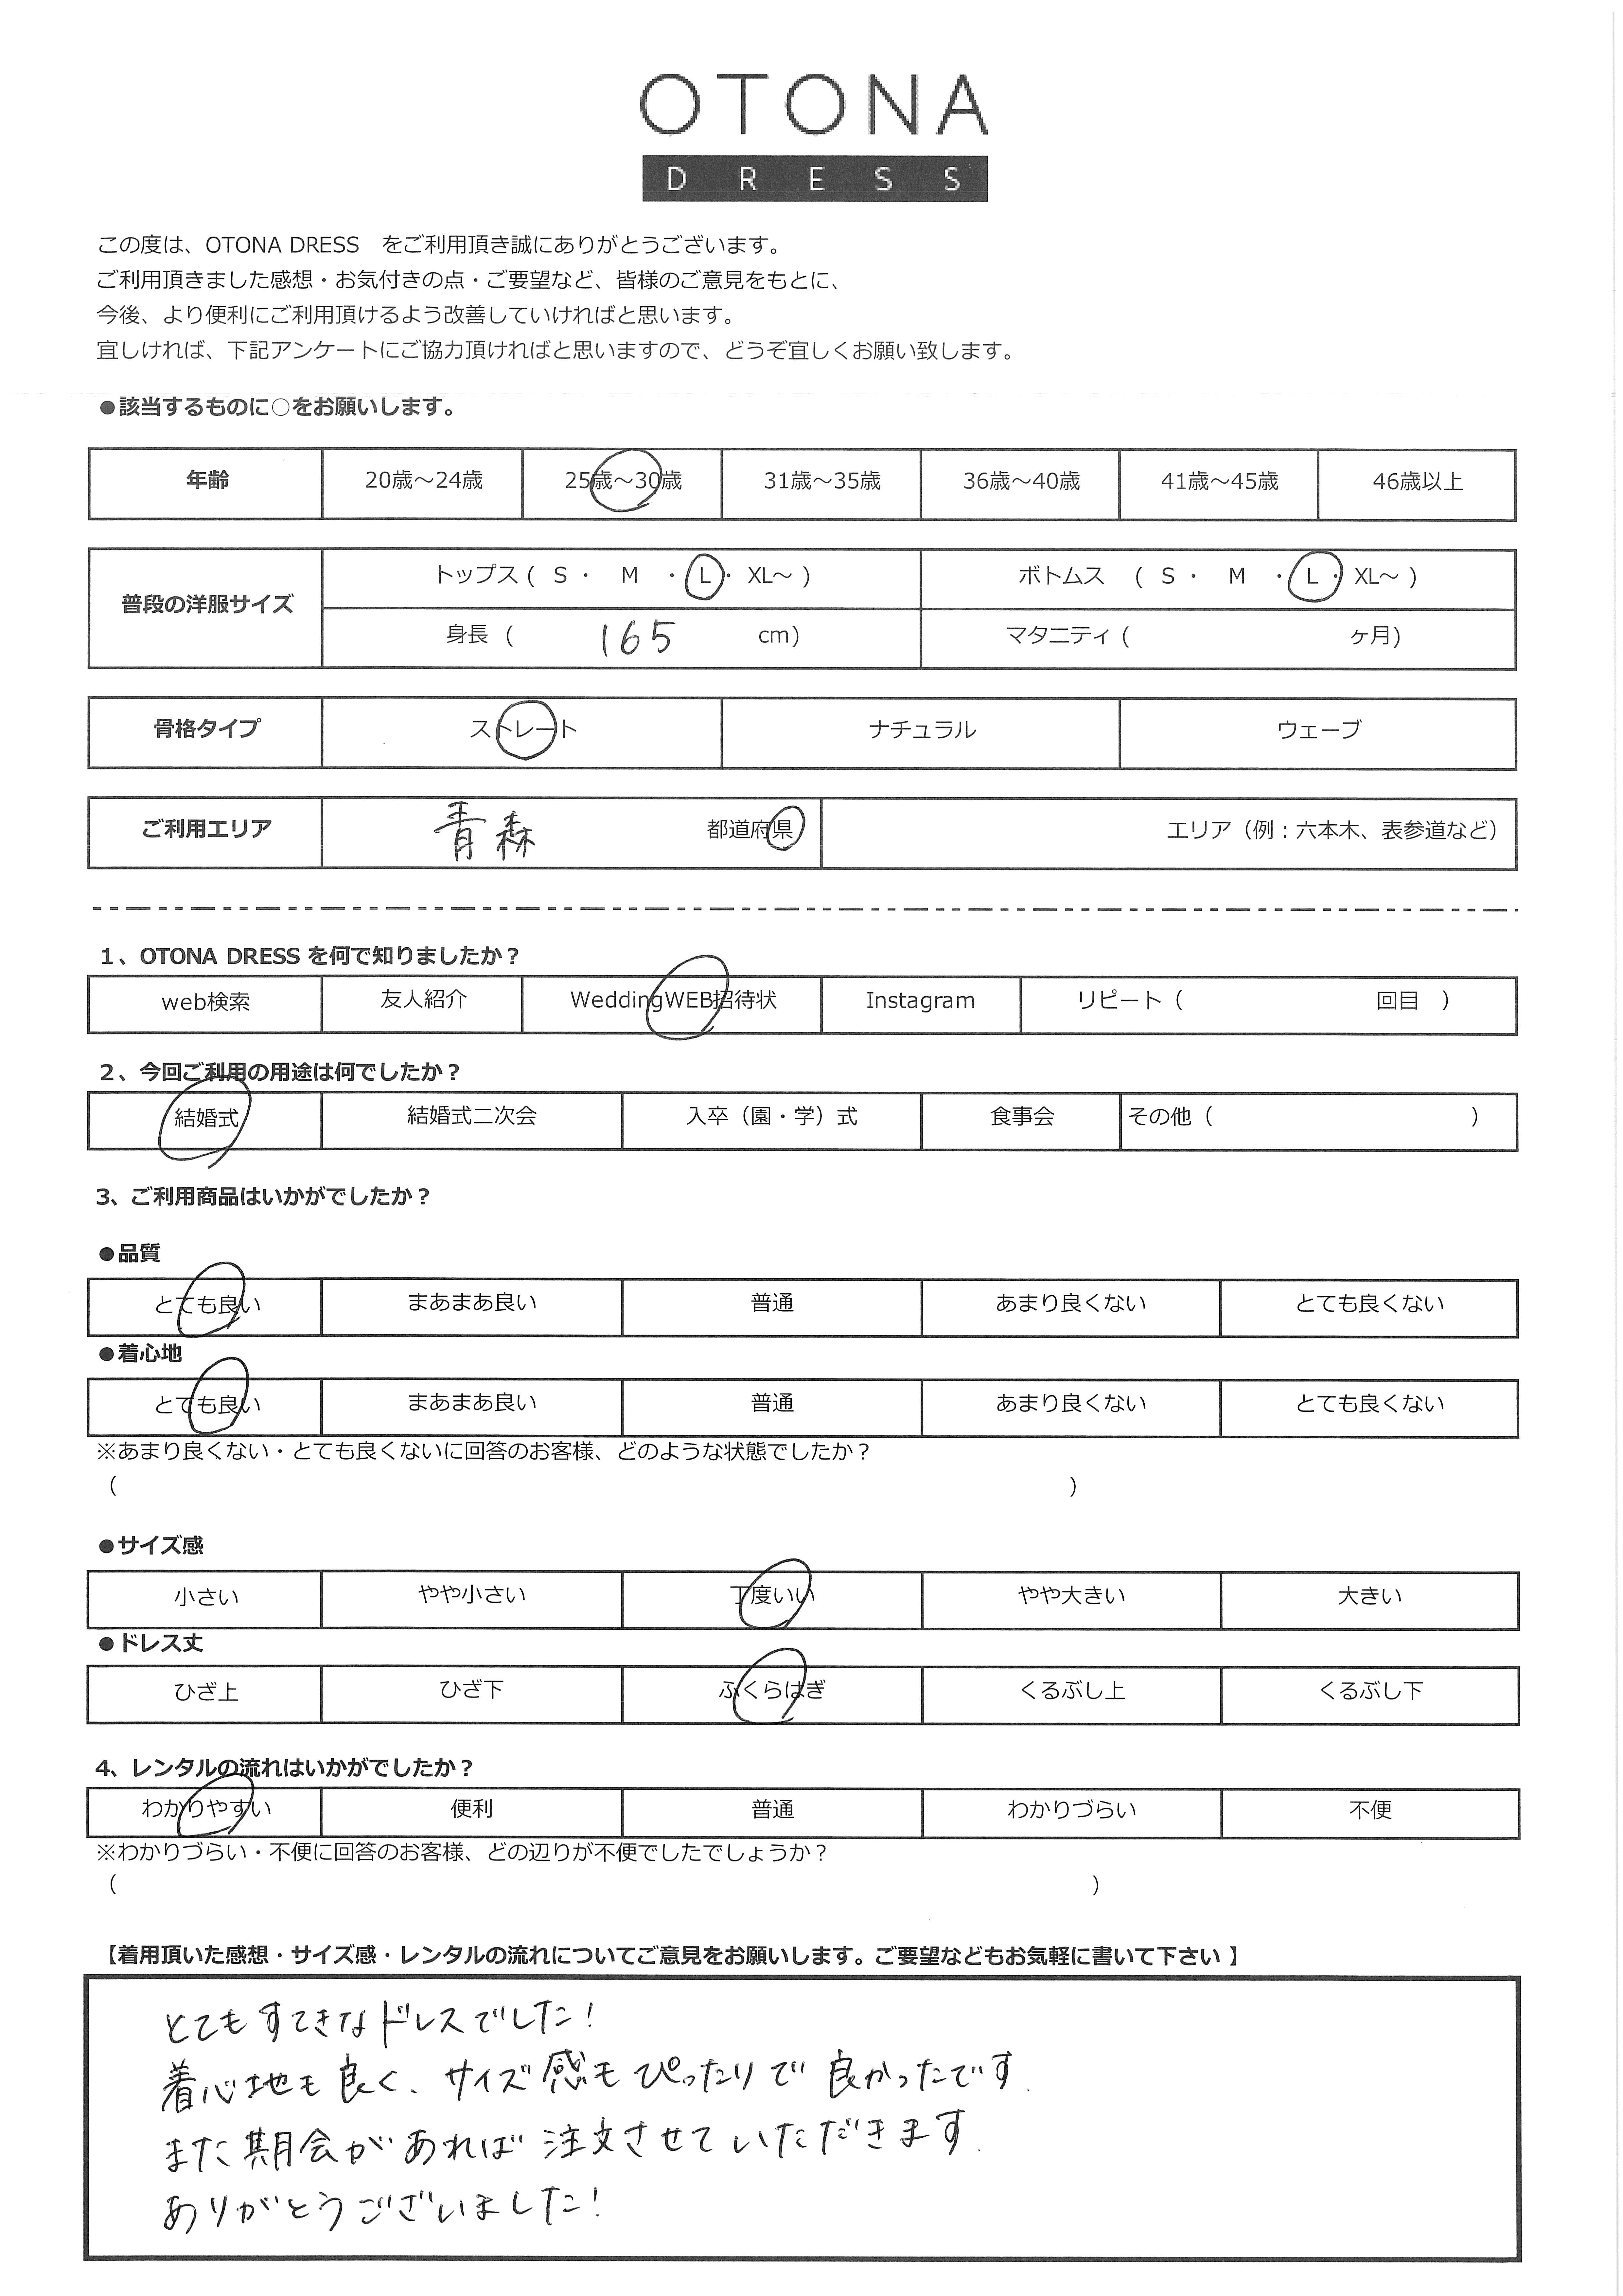 OTONA
DRESS
この度は、OTONA DRESS をご利用頂き誠にありがとうございます。
ご利用頂きました感想・お気付きの点・ご要望など、皆様のご意見をもとに、
今後、より便利にご利用頂けるよう改善していければと思います。
宜しければ、下記アンケートにご協力頂ければと思いますので、どうぞ宜しくお願い致します。
●該当するものに○をお願いします。
年齢 20歳～24歳 25歳～30歳 31歳～35歳 36歳～40歳 41歳～45歳 46歳以上
普段の洋服サイズ トップス ( S ・ M ・ L ・ XL～ ) ボトムス ( S ・ M ・ L ・ XL～ )
身長 ( 165 cm) マタニティ ( ヶ月)
骨格タイプ ストレート ナチュラル ウェーブ
ご利用エリア 青森 都道府県 エリア（例：六本木、表参道など）
1、OTONA DRESS を何で知りましたか？
web検索 友人紹介 WeddingWEB招待状 Instagram リピート（ 回目 ）
2、今回ご利用の用途は何でしたか？
結婚式 結婚式二次会 入卒（園・学）式 食事会 その他（ ）
3、ご利用商品はいかがでしたか？
●品質
とても良い まあまあ良い 普通 あまり良くない とても良くない
●着心地
とても良い まあまあ良い 普通 あまり良くない とても良くない
※あまり良くない・とても良くないに回答のお客様、どのような状態でしたか？
（ ）
●サイズ感
小さい やや小さい 丁度いい やや大きい 大きい
●ドレス丈
ひざ上 ひざ下 ふくらはぎ くるぶし上 くるぶし下
4、レンタルの流れはいかがでしたか？
わかりやすい 便利 普通 わかりづらい 不便
※わかりづらい・不便に回答のお客様、どの辺りが不便でしたでしょうか？
（ ）
【着用頂いた感想・サイズ感・レンタルの流れについてご意見をお願いします。ご要望などもお気軽に書いて下さい 】
とてもすてきなドレスでした！
着心地も良く、サイズ感もぴったりで良かったです.
また期会があれば注文させていただきます.
ありがとうございました！